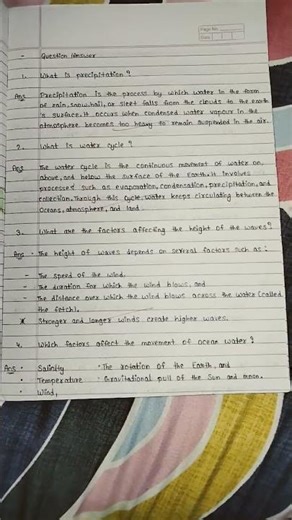 Page No.
Date
- Question Answer
1. What is precipitation?
Ans Precipitation is the process by which water in the form
of rain, snow, hail, or sleet falls from the clouds to the Earth
's surface. It occurs when condensed water vapour in the
atmosphere becomes too heavy to remain suspended in the air.
2. What is water cycle?
Ans The water cycle is the continuous movement of water on,
above, and below the surface of the Earth. It involves
processes such as evaporation, condensation, precipitation, and
collection. Through this cycle, water keeps circulating between the
Oceans, atmosphere, and land.
3. What are the factors affecting the height of the waves?
Ans - The height of waves depends on several factors such as:
- The speed of the wind.
- The duration for which the wind blows, and
- The distance over which the wind blows across the water (called
the fetch).
* Stronger and longer winds create higher waves.
4. Which factors affect the movement of ocean water?
Ans • Salinity • The rotation of the Earth, and
• Temperature • Gravitational pull of the Sun and moon.
• Wind,